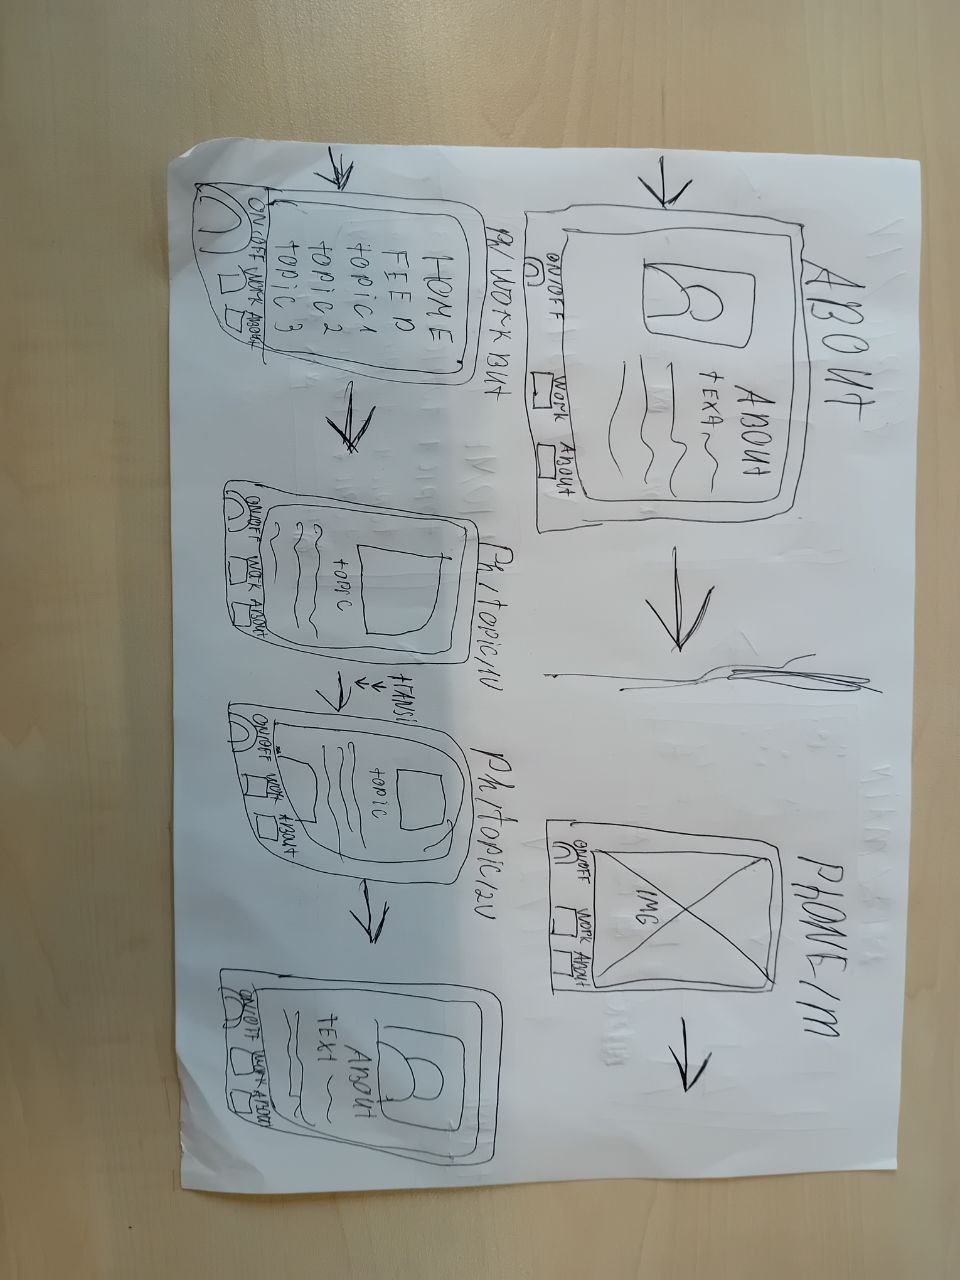 ABOUT
ABOUT
TEXT
ON/OFF WORK ABOUT
PHONE/M
IMG
ON/OFF WORK ABOUT
Ph/WORK BUt
HOME
FEED
topic 1
topic 2
topic 3
ON/OFF WORK ABOUT
Ph/topic/1V
topic
ON/OFF WORK ABOUT
tRANSi
Ph/topic/2V
topic
ON/OFF WORK ABOUT
ABOUT
tEXT
ON/OFF WORK ABOUT